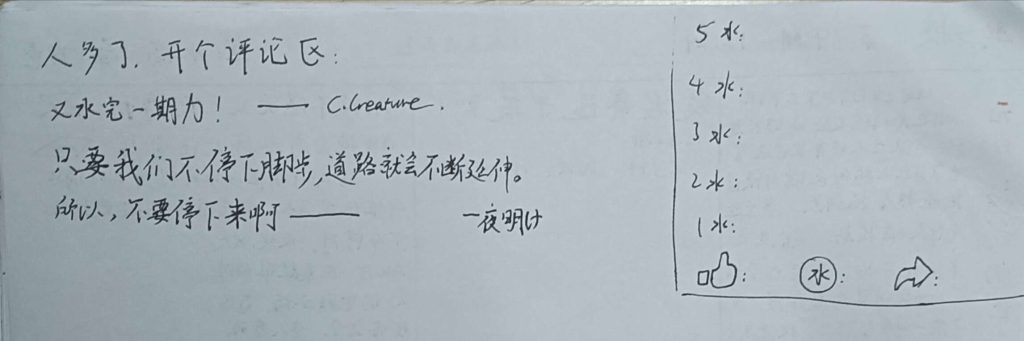 人多了，开个评论区：
又水完一期力！ —— C.Creature.
只要我们不停下脚步,道路就会不断延伸。
所以，不要停下来啊—— 一夜明计
5水:
4水:
3水:
2水:
1水:
水: